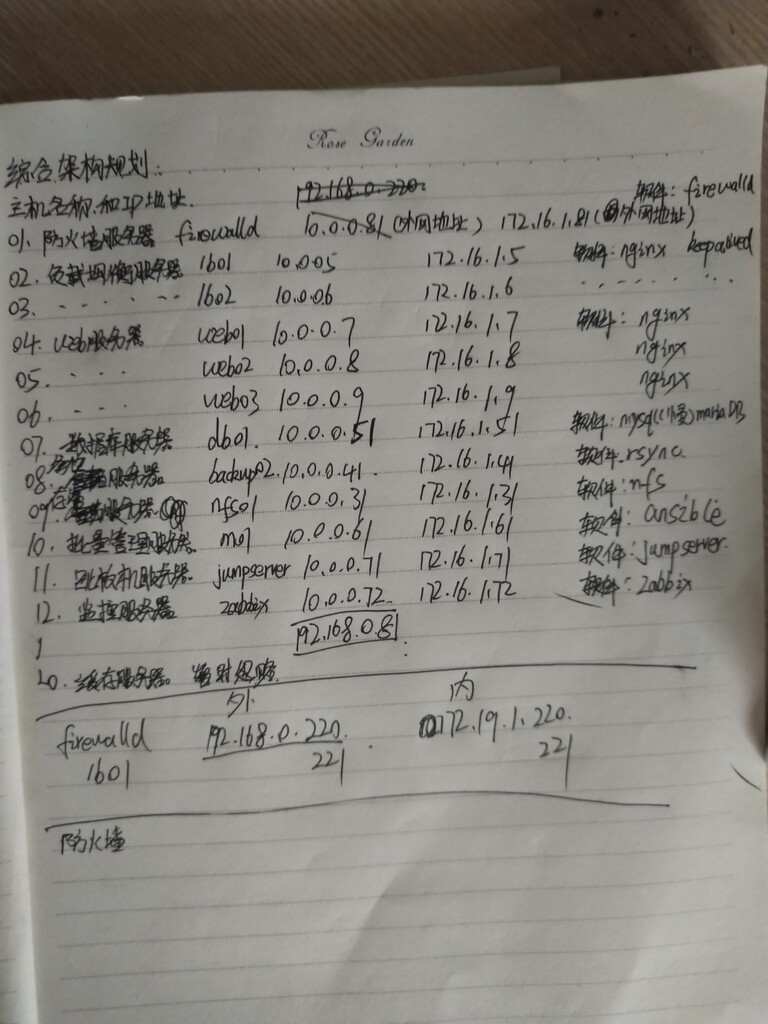 Rose Garden
综合架构规划:
主机名称和IP地址. 192.168.0.220. 软件: firewalld
01. 防火墙服务器 firewalld 10.0.0.81(外网地址) 172.16.1.81(外网地址)
02. 负载均衡服务器 lb01 10.0.0.5 172.16.1.5 软件: nginx keepalived
03. lb02 10.0.0.6 172.16.1.6
04. web服务器 web01 10.0.0.7 172.16.1.7 软件: nginx
05. web02 10.0.0.8 172.16.1.8 nginx
06. web03 10.0.0.9 172.16.1.9 nginx
07. 数据库服务器 db01. 10.0.0.51 172.16.1.51 软件: mysql(慢) mariaDB
08. 备份服务器 backup02. 10.0.0.41. 172.16.1.41 软件. rsync
09. 存储服务器. nfs01 10.0.0.31 172.16.1.31 软件: nfs
10. 批量管理服务器. m01 10.0.0.61 172.16.1.61 软件: ansible
11. 跳板机服务器. jumpserver 10.0.0.71 172.16.1.71 软件: jumpserver.
12. 监控服务器 zabbix 10.0.0.72 172.16.1.72 软件: zabbix
192.168.0.81
20. 缓存服务器。暂时忽略
外 内
firewalld 192.168.0.220. 172.19.1.220.
lb01 221 221
防火墙